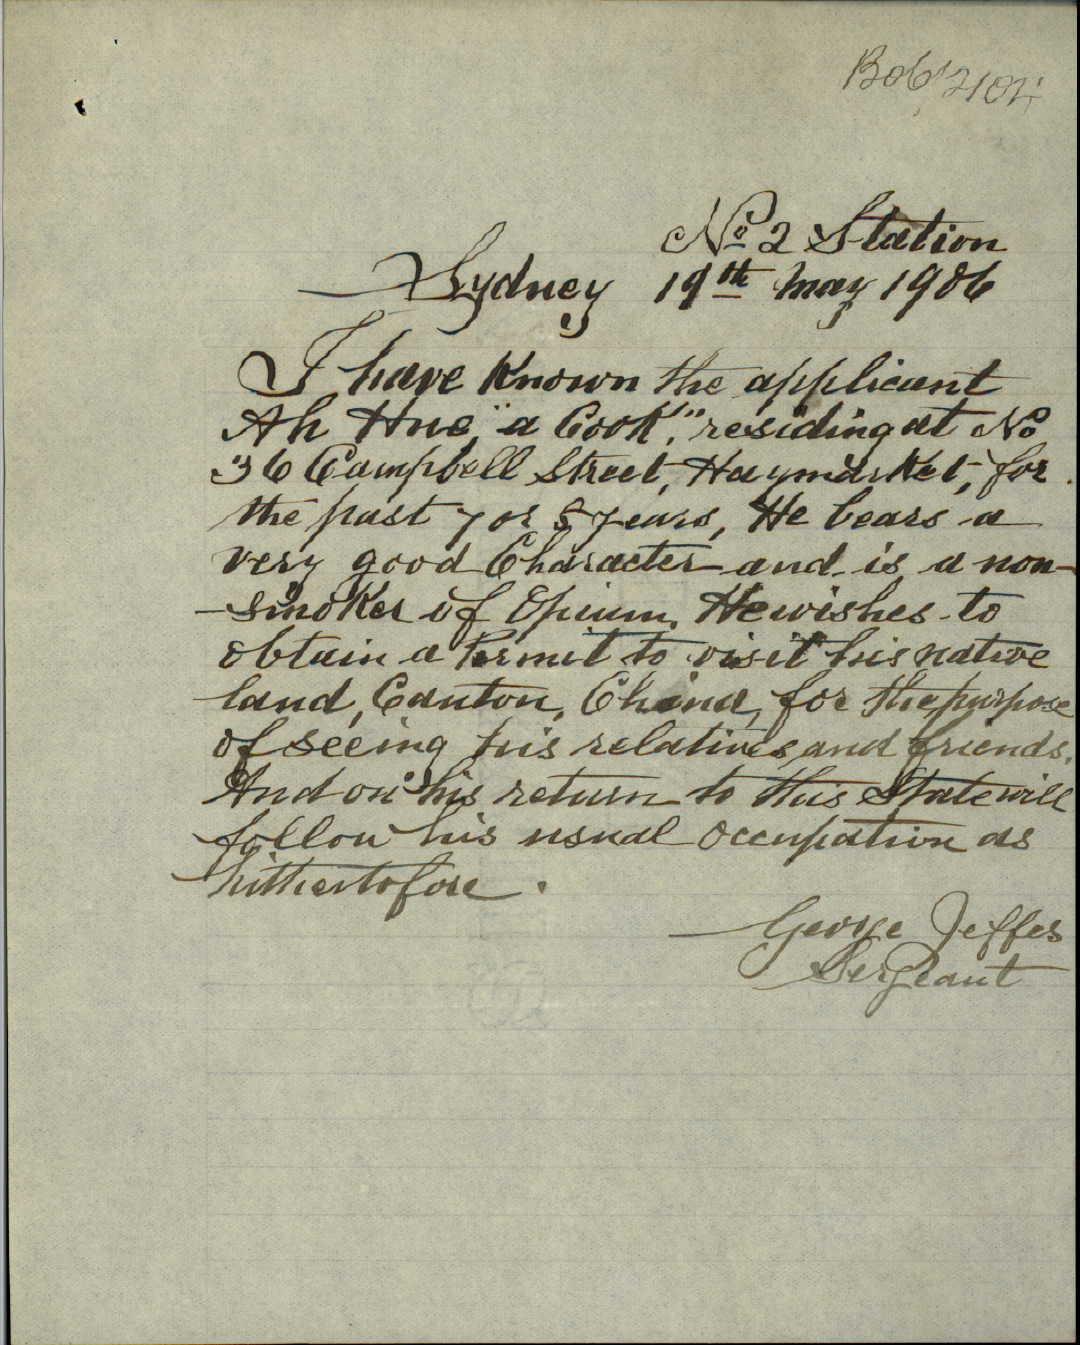 B06/2104
No 2 Station
Sydney 19th May 1906
I have Known the applicant
Ah Hue "a Cook", residing at No
36 Campbell Street, Haymarket, for
the past 7 or 8 years, He bears a
very good Character and is a non-
-smoker of Opium. He wishes to
obtain a Permit to visit his native
land, Canton, China, for the purpose
of seeing his relatives and friends.
And on his return to this State will
follow his usual occupation as
hithertofore.
George Jeffes
Sergeant